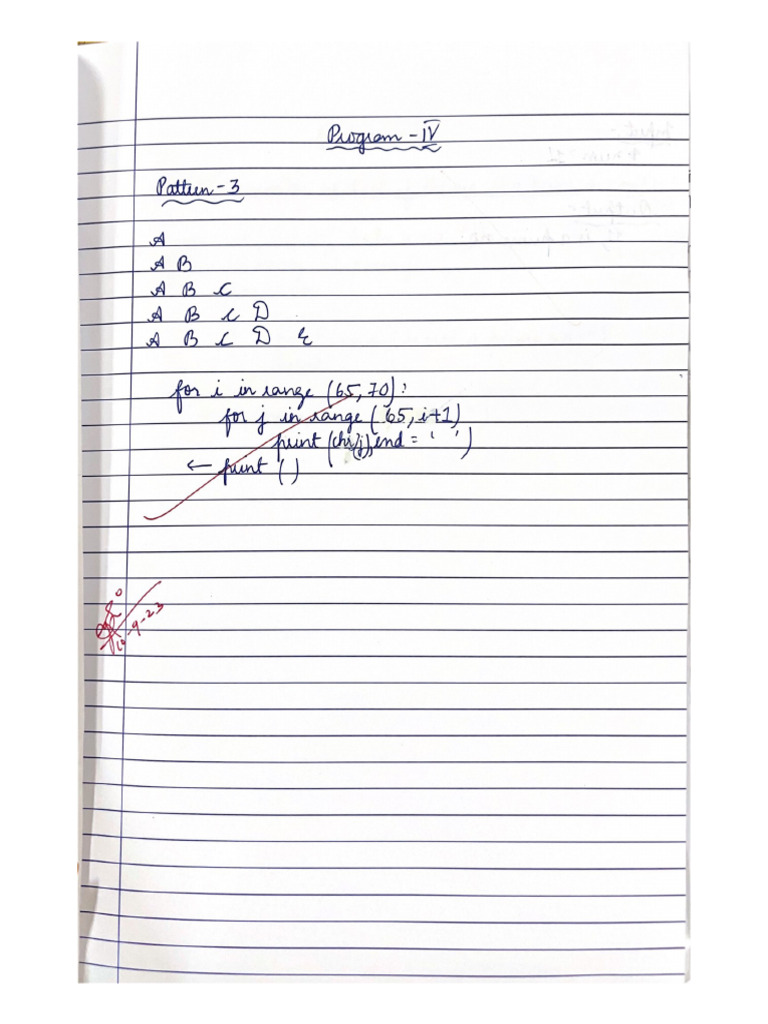 Program - IV
Pattern - 3
A
A B
A B C
A B C D
A B C D E
for i in range (65, 70):
for j in range ( 65, i+1)
print (chr(j), end = ' ')
← print ( )
-9-23